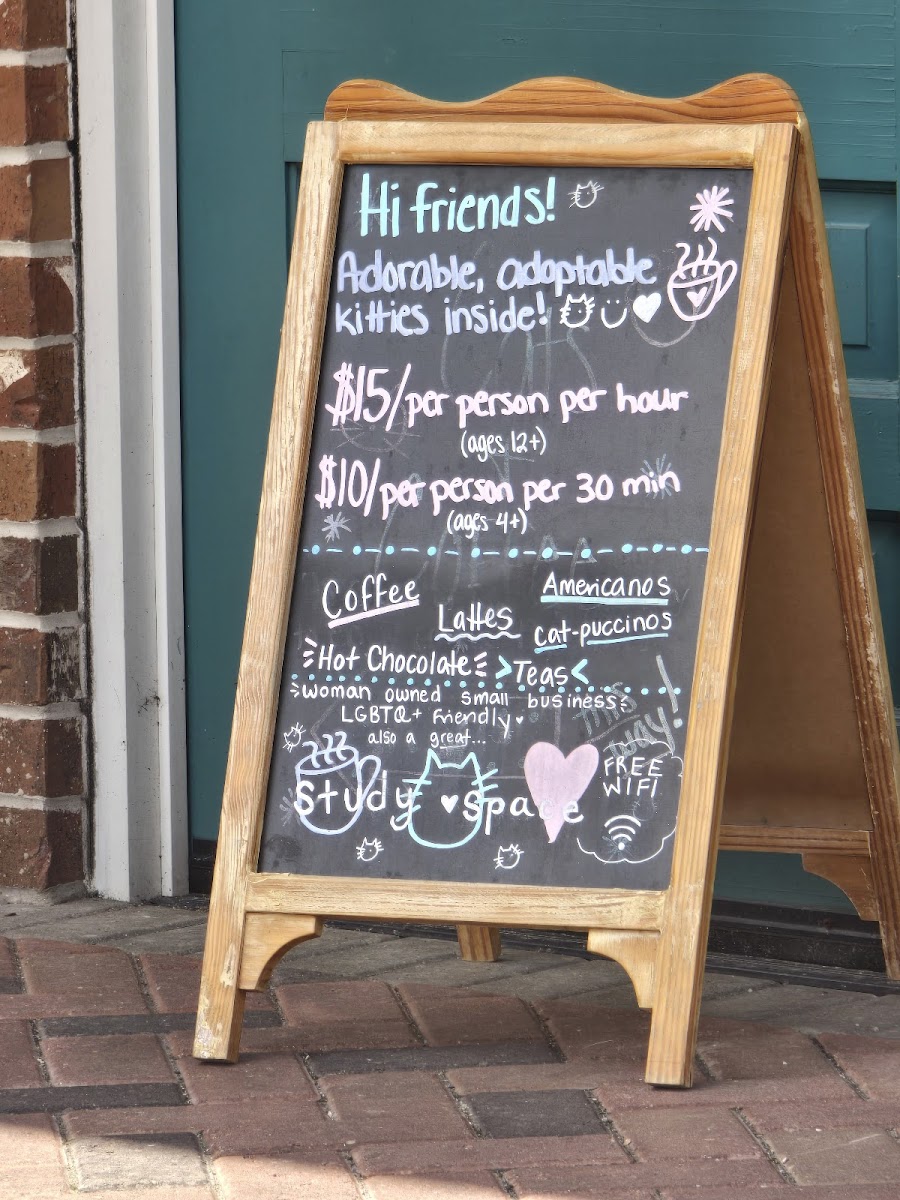 Hi friends!
Adorable, adoptable
kitties inside!
$15/per person per hour
(ages 12+)
$10/per person per 30 min
(ages 4+)
Coffee
Americanos
Lattes
cat-puccinos
Hot Chocolate
Teas
woman owned small business
LGBTQ+ friendly
also a great...
study space
FREE
WIFI
this